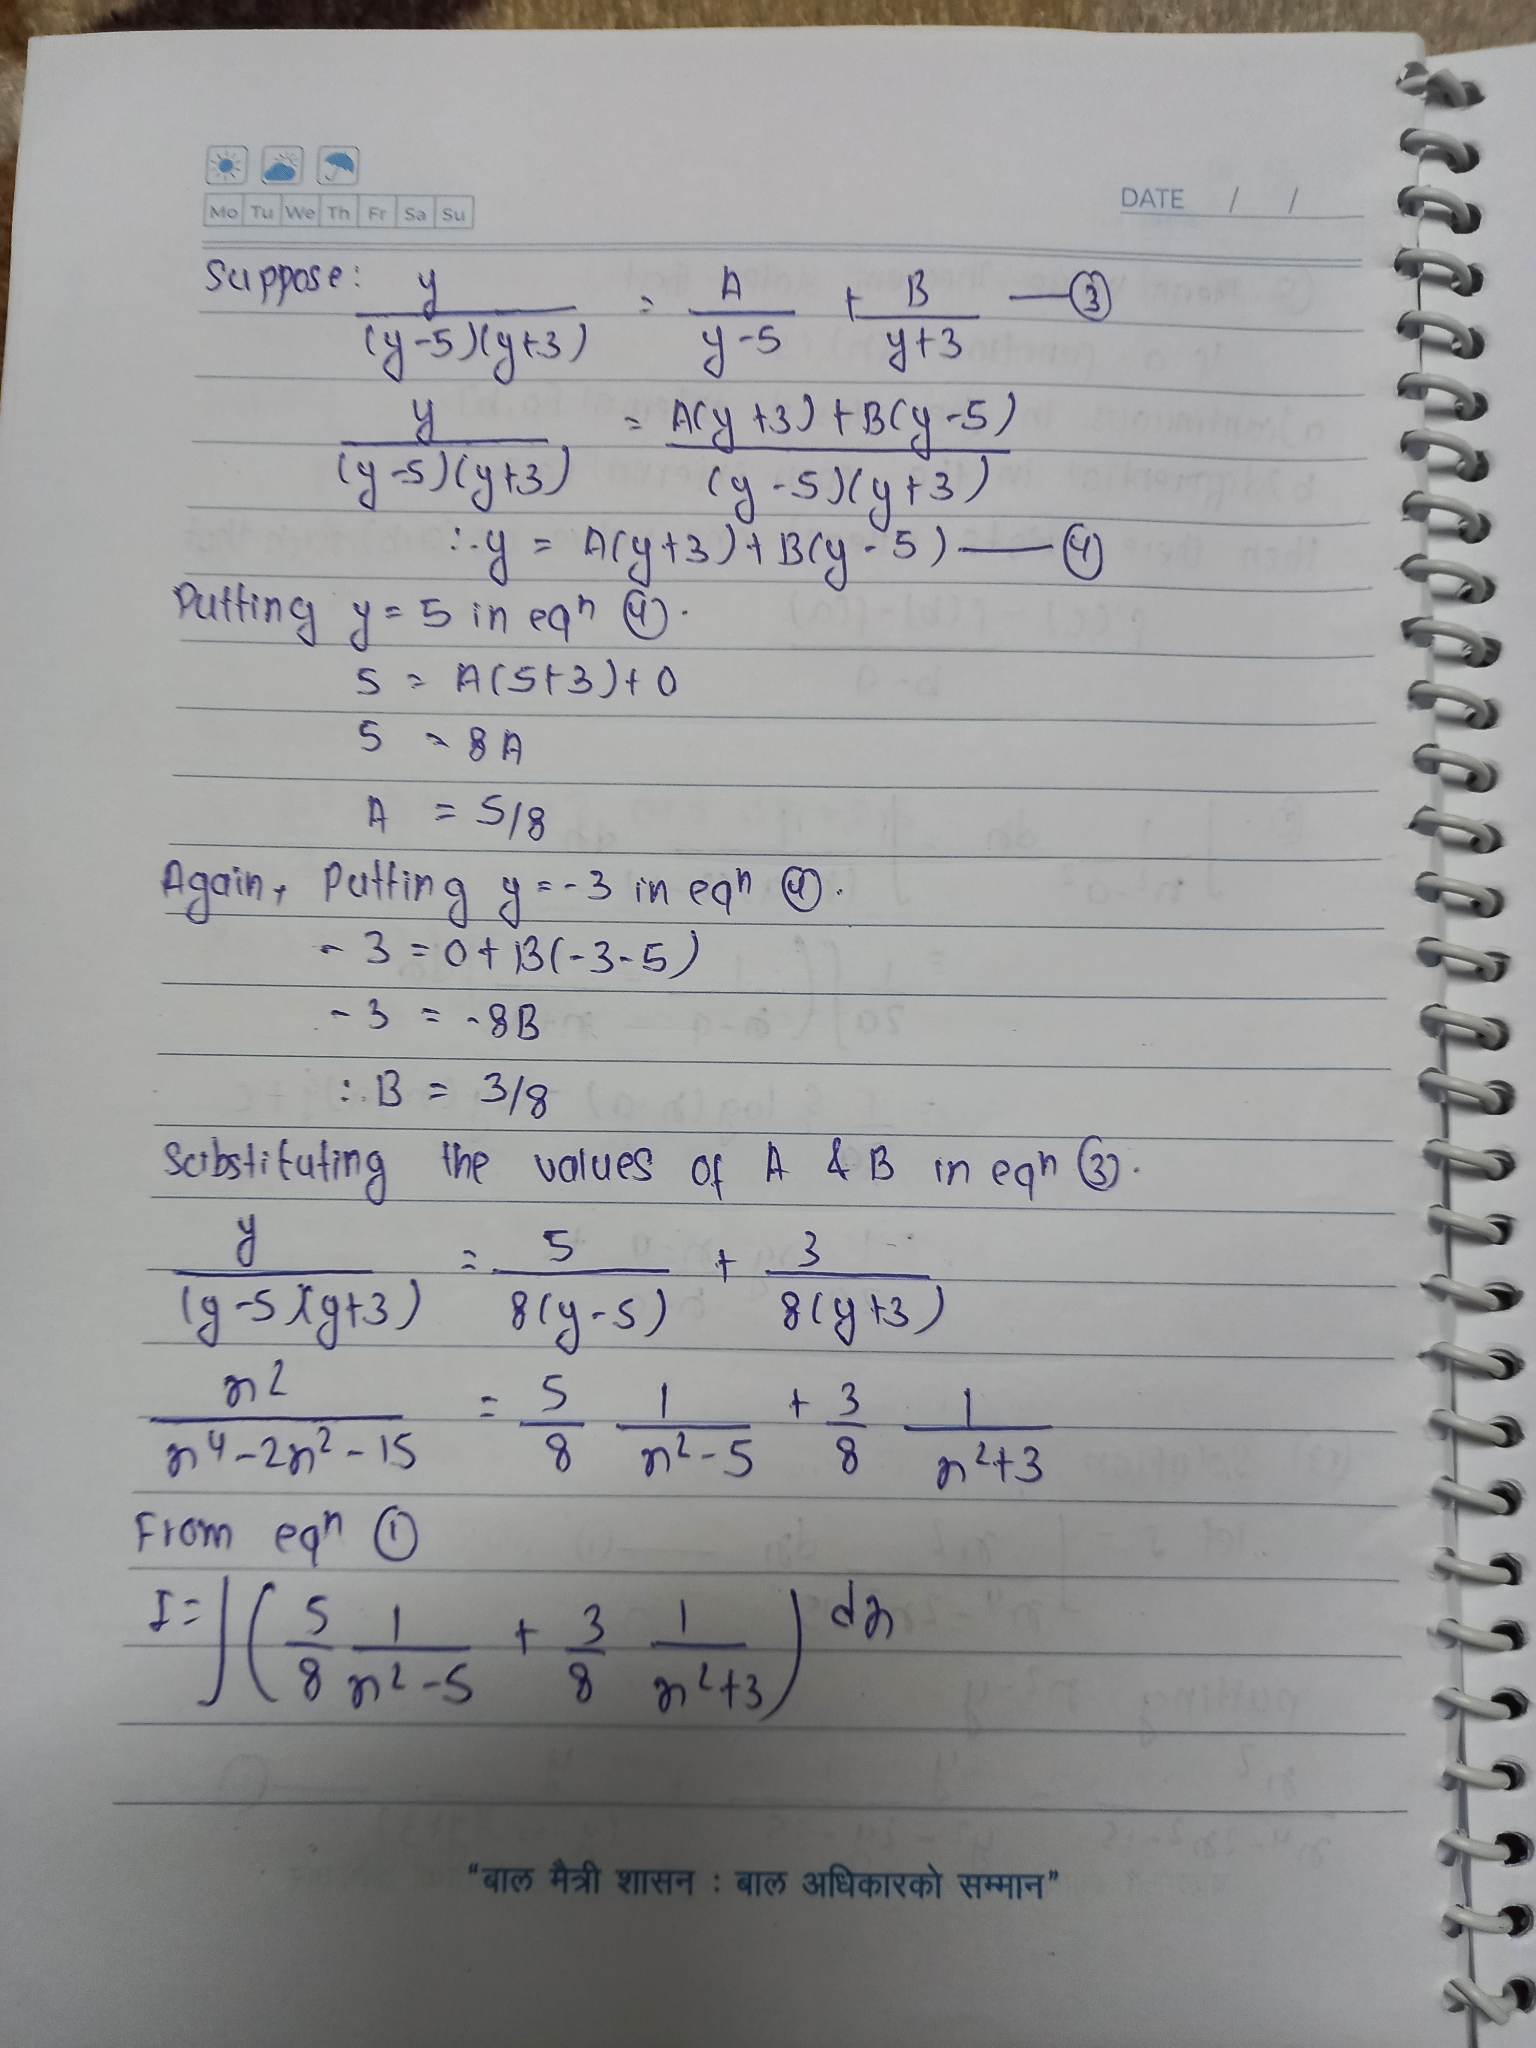 Mo Tu We Th Fr Sa Su
DATE / /
Suppose: y/((y-5)(y+3)) = A/(y-5) + B/(y+3) — ③
y/((y-5)(y+3)) = (A(y+3)+B(y-5))/((y-5)(y+3))
∴ y = A(y+3)+B(y-5) — ④
Putting y = 5 in eqn ④.
5 = A(5+3)+0
5 = 8A
A = 5/8
Again, Putting y = -3 in eqn ④.
-3 = 0+B(-3-5)
-3 = -8B
∴ B = 3/8
Substituting the values of A & B in eqn ③.
y/((y-5)(y+3)) = 5/(8(y-5)) + 3/(8(y+3))
x²/(x⁴-2x²-15) = 5/8 1/(x²-5) + 3/8 1/(x²+3)
From eqn ①
I = ∫(5/8 1/(x²-5) + 3/8 1/(x²+3)) dx
"बाल मैत्री शासन : बाल अधिकारको सम्मान"